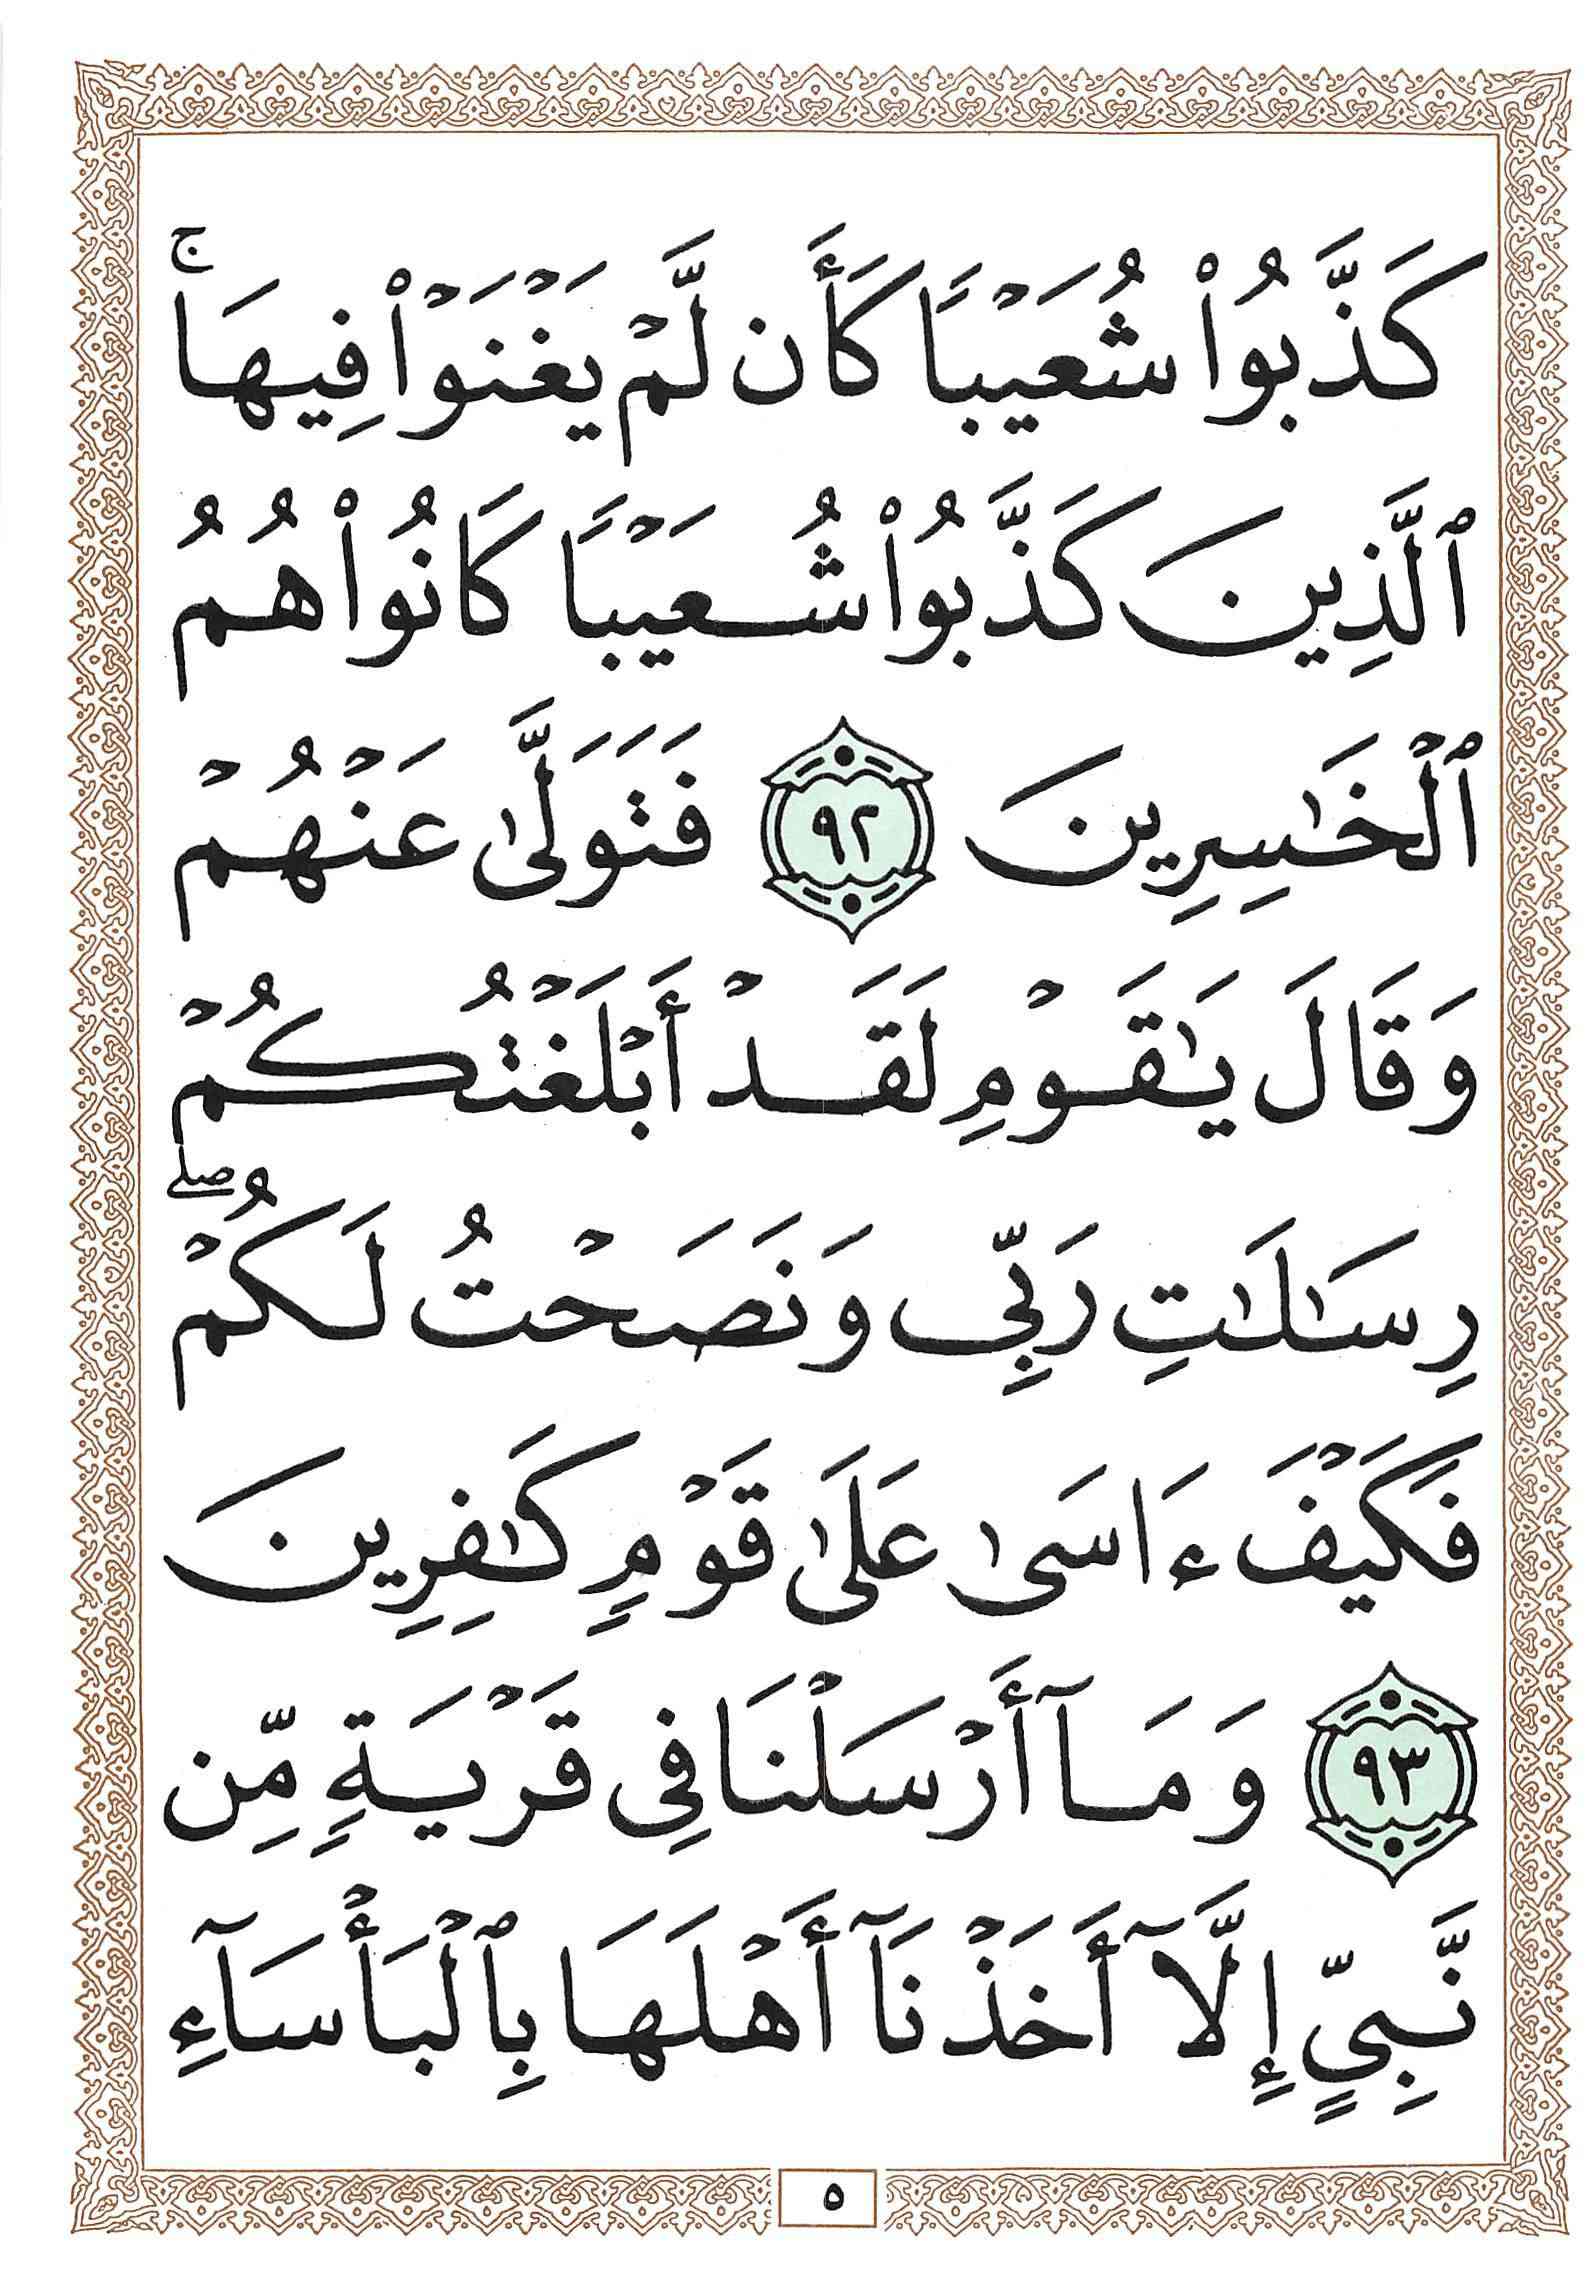 كَذَّبُوا۟ شُعَيْبًا كَأَن لَّمْ يَغْنَوْا۟ فِيهَا ۚ
ٱلَّذِينَ كَذَّبُوا۟ شُعَيْبًا كَانُوا۟ هُمُ
ٱلْخَـٰسِرِينَ ٩٢ فَتَوَلَّىٰ عَنْهُمْ
وَقَالَ يَـٰقَوْمِ لَقَدْ أَبْلَغْتُكُمْ
رِسَـٰلَـٰتِ رَبِّى وَنَصَحْتُ لَكُمْ ۖ
فَكَيْفَ ءَاسَىٰ عَلَىٰ قَوْمٍ كَـٰفِرِينَ
٩٣ وَمَآ أَرْسَلْنَا فِى قَرْيَةٍ مِّن
نَّبِىٍّ إِلَّآ أَخَذْنَآ أَهْلَهَا بِٱلْبَأْسَآءِ
٥